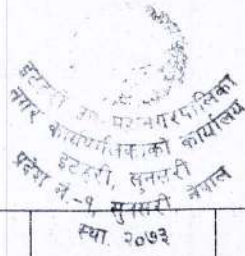 इटहरी उप-महानगरपालिका
नगर कार्यपालिकाको कार्यालय
इटहरी, सुनसरी
प्रदेश नं.-१, सुनसरी नेपाल
स्था. २०७३